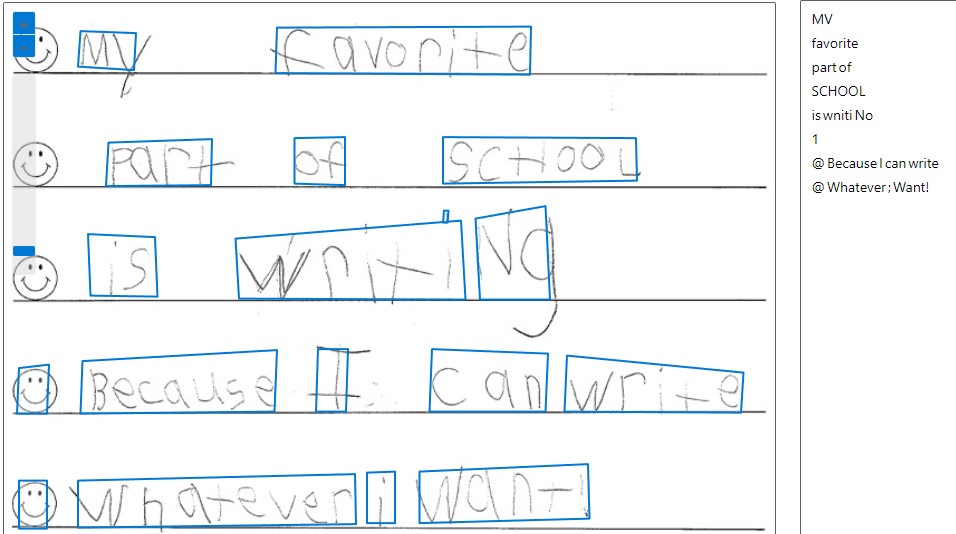 My favorite
part of SCHOOL
is writiNg
Because I can write
Whatever i want!
MV
favorite
part of
SCHOOL
is wniti No
1
@ Because I can write
@ Whatever ; Want!